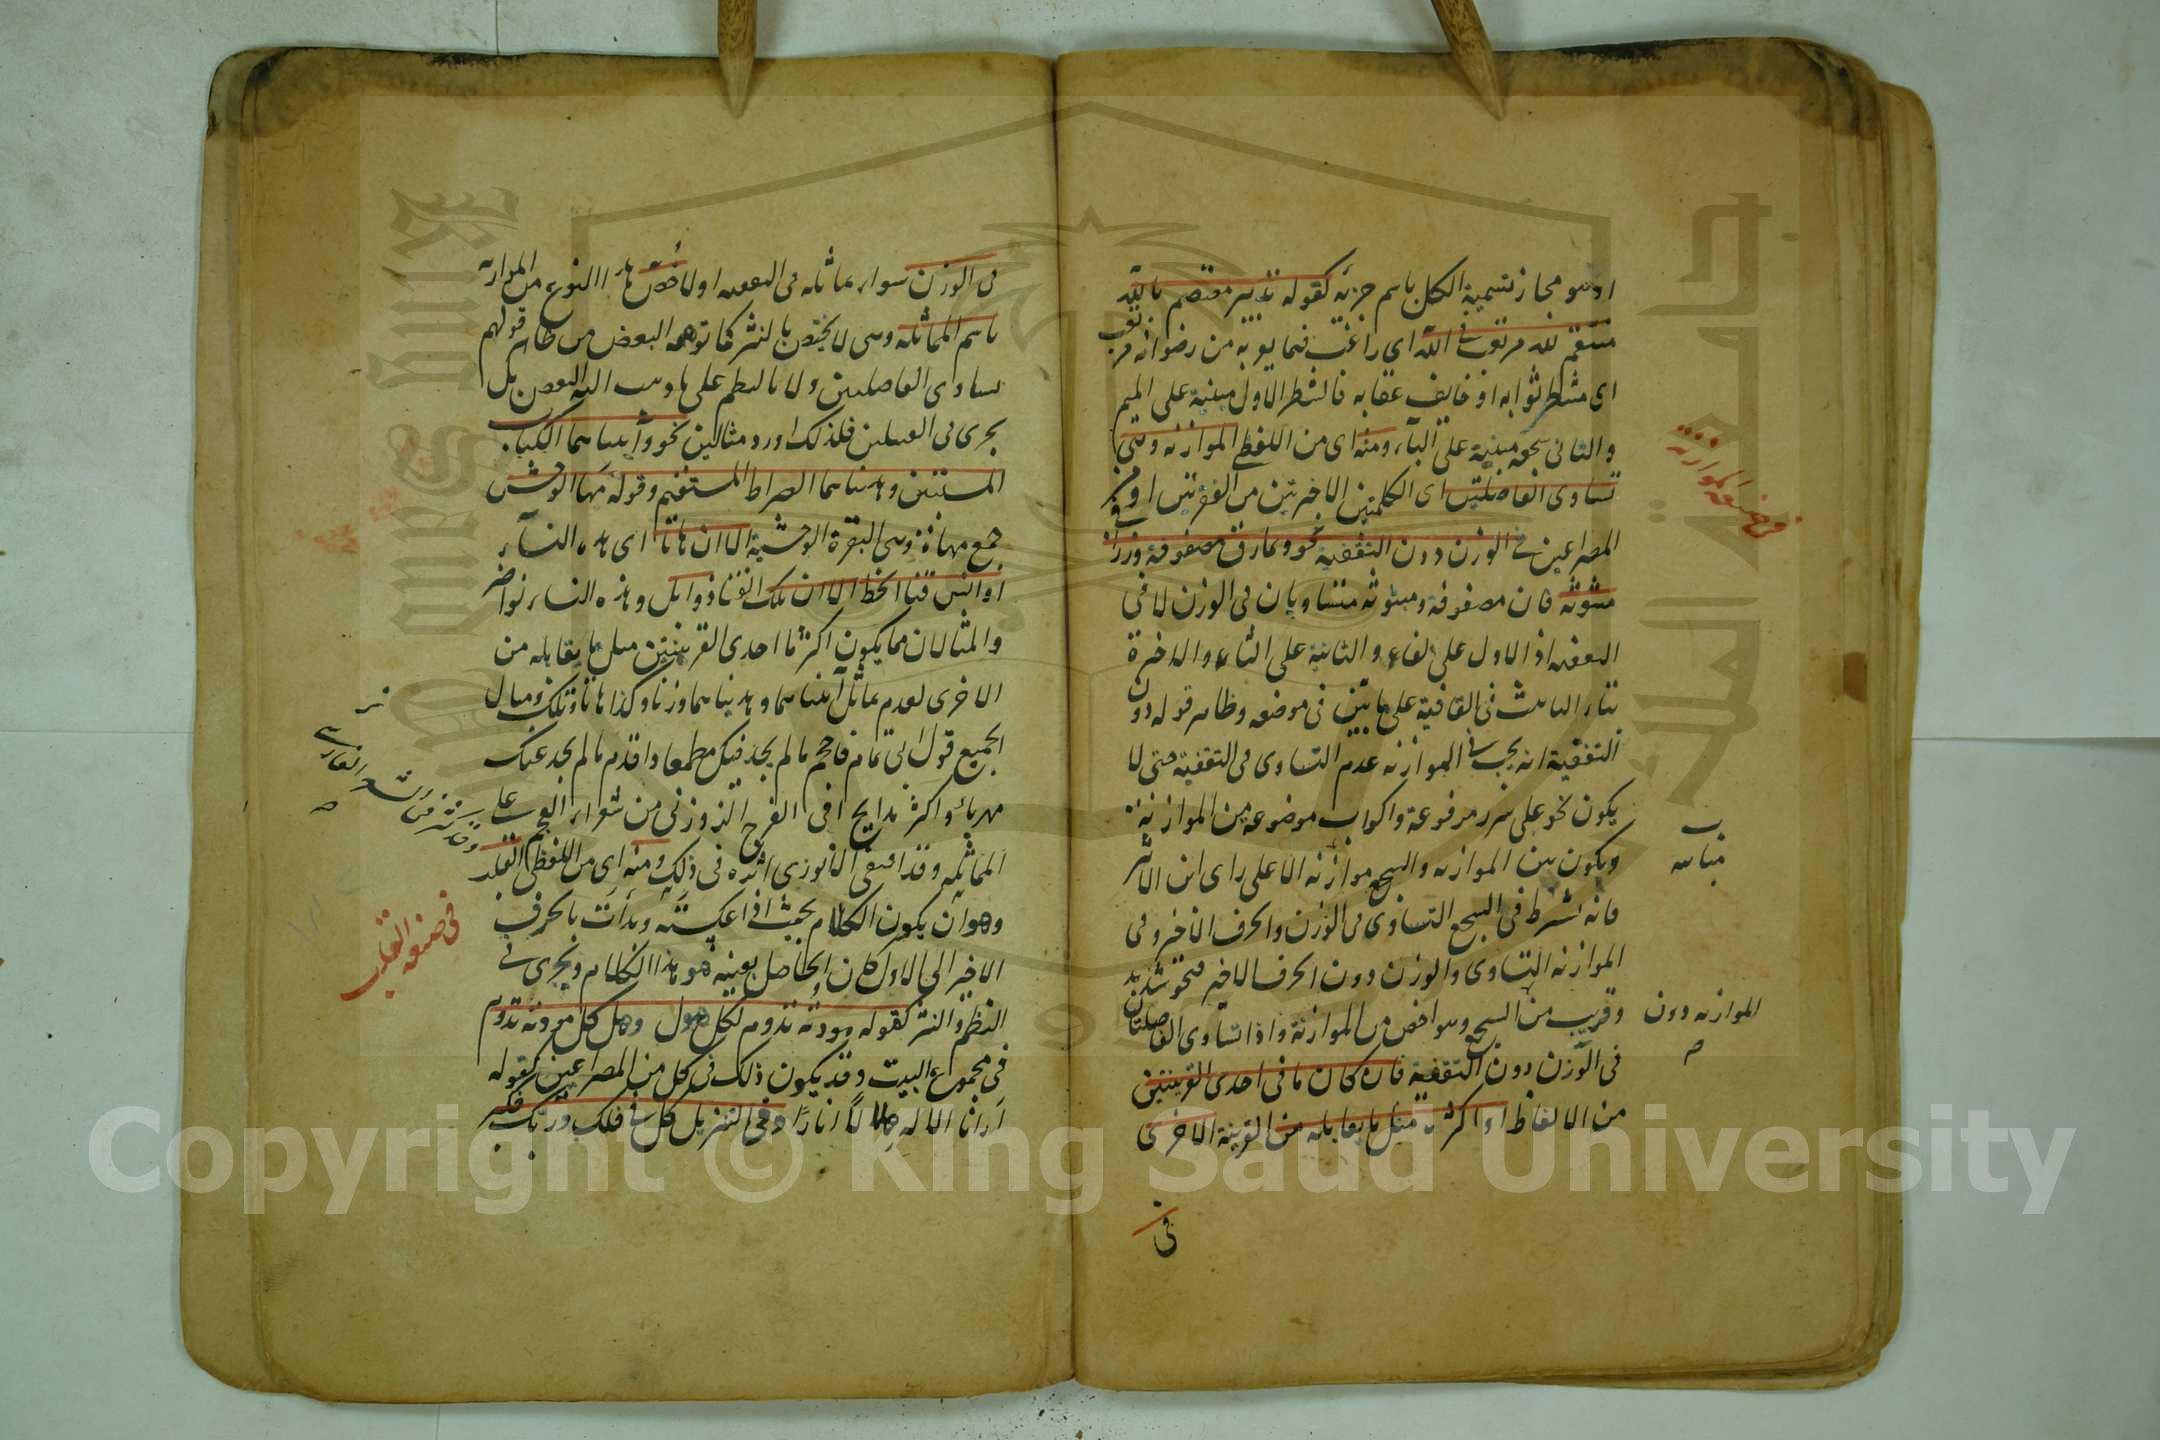 او هو مجاز تسمية الكل باسم جزئه كقوله تدبير معتصم بالله
منتقم لله مرتغب في الله اى راغب فيما يقربه من رضوانه مرتقب
اى منتظر ثوابه او خايف عقابه فالشطر الاول مبنية على الميم
والثانى سجعه مبنية على الباء ومنه اى من اللفظى الموازنه وهى
تساوى الفاصلتين اى الكلمتين الاخيرتين من الفقرتين او من
المصراعين فى الوزن دون التقفية نحو ونمارق مصفوفة وزرابى
مبثوثة فان مصفوفة ومبثوثه متساويان فى الوزن لا فى
التقفيه اذ الاول على الفاء والثانية على الثاء ولا عبرة
بتاء التانيث فى القافية على ما بين فى موضعه وظاهر قوله دون
التقفية انه يجب فى الموازنه عدم التساوى فى التقفية حتى لا
يكون نحو على سرر مرفوعة واكواب موضوعه من الموازنة
ويكون بين الموازنه والسجع مباينه الا على راى ابن الاثير
فانه يشترط فى السجع التساوى فى الوزن والحرف الاخير وفى
الموازنه التساوى والوزن دون الحرف الاخير فنحو شديد
وقريب من الموازنه دون السجع وهو اخص من الموازنة واذا تساوى الفاصلتان
فى الوزن دون التقفية فان كان ما فى احدى القرينتين
من الالفاظ او اكثره مثل ما يقابله من القرينة الاخرى
فى
فى صنعة الموازنة
مباينه
الموازنه دون
صح
فى الوزن سواء ماثله فى التقفيه او لا خص هذا النوع من الموازنه
باسم المماثله وهى لا يختص بالنثر كما توهمه البعض من ظاهر قولهم
تساوى الفاصلتين ولا بالنظم على ما ذهب اليه البعض بل
يجرى فى القبيلين فلذلك اورد مثالين نحو وآتيناهما الكتاب
المستبين وهديناهما الصراط المستقيم وقوله مها الوحش
جمع مهاة وهى البقرة الوحشية الا ان هاتا اى هذه النساء
اوانس قنا الخط الا ان تلك القنا ذوابل وهذه النساء نواضر
والمثالان مما يكون اكثر ما احدى القرينتين مثل ما يقابله من
الاخرى لعدم تماثل آتيناهما وهديناهما وزنا وكذا هاتا وتلك ومثال
الجميع قول ابى تمام فاحجم لما لم يجد فيك مطمعا واقدم لما لم يجد عنك
مهربا واكثر مدايح ابى الفرج الزوزنى من شعراء العجم على
المماثله وقد اقتفى الانورى اثره فى ذلك ومنه اى من اللفظى القلب
وهو ان يكون الكلام بحيث اذا عكسته وبدأت بالحرف
الاخير الى الاول كان الحاصل بعينه هو هذا الكلام ويجرى فى
النظم والنثر كقوله مودته تدوم لكل هول وهل كل مودته تدوم
فى مجموع البيت وقد يكون ذلك فى كل من المصراعين كقوله
ارانا الاله هلالا انارا وفى التنزيل كل فى فلك وربك فكبر
فى صنعة القلب
صح